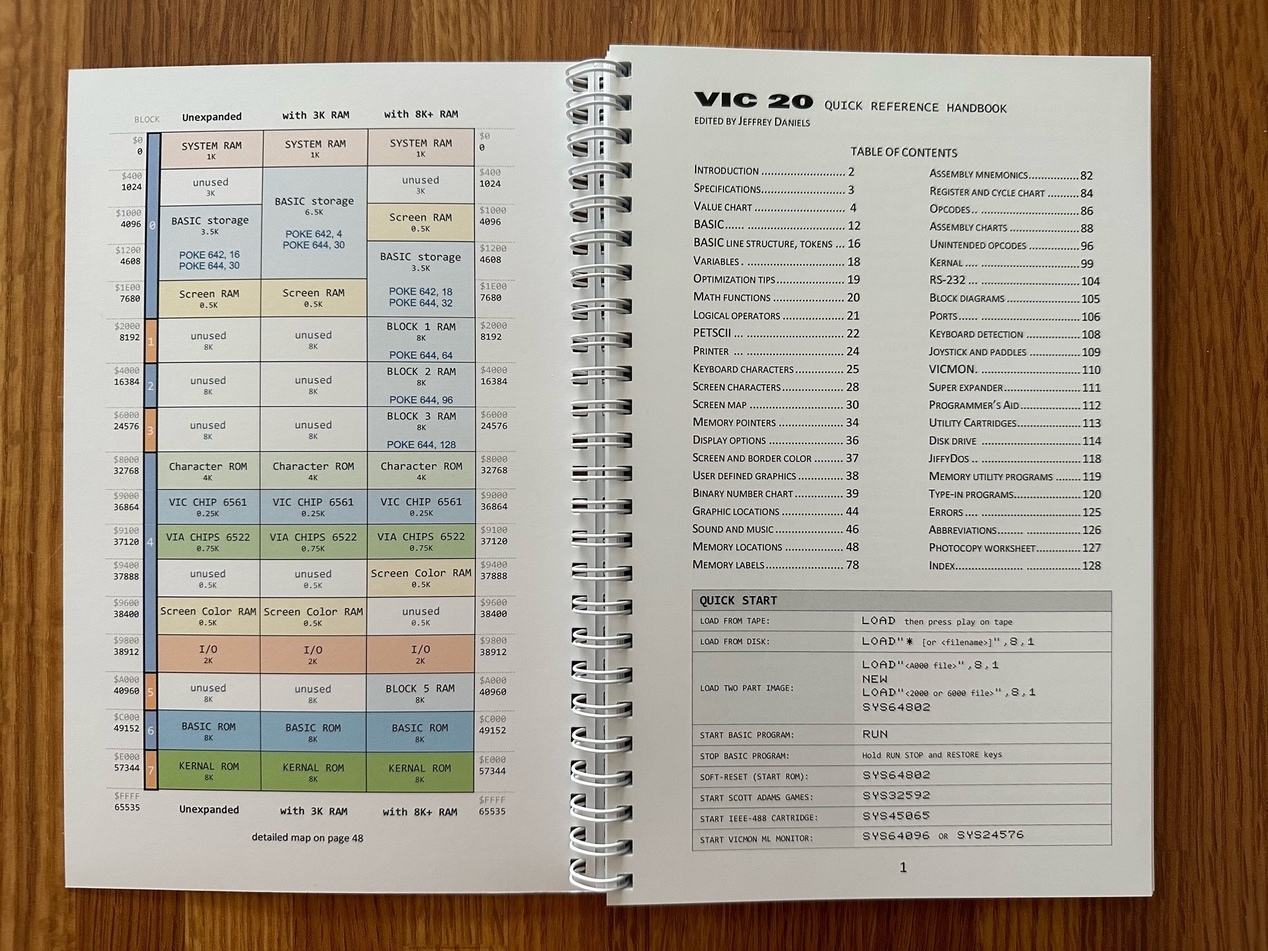 BLOCK Unexpanded with 3K RAM with 8K+ RAM
$0 SYSTEM RAM SYSTEM RAM SYSTEM RAM $0
0 1K 1K 1K 0
$400 unused unused $400
1024 3K 3K 1024
BASIC storage
6.5K
POKE 642, 4
POKE 644, 30
$1000 BASIC storage Screen RAM $1000
4096 3.5K 0.5K 4096
0
$1200 POKE 642, 16 BASIC storage $1200
4608 POKE 644, 30 3.5K 4608
$1E00 Screen RAM Screen RAM POKE 642, 18 $1E00
7680 0.5K 0.5K POKE 644, 32 7680
$2000 unused unused BLOCK 1 RAM $2000
8192 1 8K 8K 8K 8192
POKE 644, 64
$4000 unused unused BLOCK 2 RAM $4000
16384 2 8K 8K 8K 16384
POKE 644, 96
$6000 unused unused BLOCK 3 RAM $6000
24576 3 8K 8K 8K 24576
POKE 644, 128
$8000 Character ROM Character ROM Character ROM $8000
32768 4K 4K 4K 32768
$9000 VIC CHIP 6561 VIC CHIP 6561 VIC CHIP 6561 $9000
36864 0.25K 0.25K 0.25K 36864
$9100 4 VIA CHIPS 6522 VIA CHIPS 6522 VIA CHIPS 6522 $9100
37120 0.75K 0.75K 0.75K 37120
$9400 unused unused Screen Color RAM $9400
37888 0.5K 0.5K 0.5K 37888
$9600 Screen Color RAM Screen Color RAM unused $9600
38400 0.5K 0.5K 0.5K 38400
$9800 I/O I/O I/O $9800
38912 2K 2K 2K 38912
$A000 unused unused BLOCK 5 RAM $A000
40960 5 8K 8K 8K 40960
$C000 BASIC ROM BASIC ROM BASIC ROM $C000
49152 6 8K 8K 8K 49152
$E000 KERNAL ROM KERNAL ROM KERNAL ROM $E000
57344 7 8K 8K 8K 57344
$FFFF Unexpanded with 3K RAM with 8K+ RAM $FFFF
65535 65535
detailed map on page 48
VIC 20 QUICK REFERENCE HANDBOOK
EDITED BY JEFFREY DANIELS
TABLE OF CONTENTS
INTRODUCTION ............................ 2
SPECIFICATIONS............................ 3
VALUE CHART .............................. 4
BASIC...... ............................... 12
BASIC LINE STRUCTURE, TOKENS ... 16
VARIABLES . ............................... 18
OPTIMIZATION TIPS....................... 19
MATH FUNCTIONS ........................ 20
LOGICAL OPERATORS .................... 21
PETSCII ... ............................... 22
PRINTER ... ............................... 24
KEYBOARD CHARACTERS................. 25
SCREEN CHARACTERS..................... 28
SCREEN MAP .............................. 30
MEMORY POINTERS ...................... 34
DISPLAY OPTIONS ........................ 36
SCREEN AND BORDER COLOR ........... 37
USER DEFINED GRAPHICS ............... 38
BINARY NUMBER CHART ................ 39
GRAPHIC LOCATIONS ..................... 44
SOUND AND MUSIC ...................... 46
MEMORY LOCATIONS .................... 48
MEMORY LABELS.......................... 78
ASSEMBLY MNEMONICS................ 82
REGISTER AND CYCLE CHART ........... 84
OPCODES .. .............................. 86
ASSEMBLY CHARTS ...................... 88
UNINTENDED OPCODES ................. 96
KERNAL .... .............................. 99
RS-232 ... .............................. 104
BLOCK DIAGRAMS....................... 105
PORTS...... .............................. 106
KEYBOARD DETECTION ................. 108
JOYSTICK AND PADDLES ................ 109
VICMON. ............................... 110
SUPER EXPANDER........................ 111
PROGRAMMER'S AID.................... 112
UTILITY CARTRIDGES.................... 113
DISK DRIVE .............................. 114
JIFFYDOS .. .............................. 118
MEMORY UTILITY PROGRAMS ........ 119
TYPE-IN PROGRAMS..................... 120
ERRORS .... .............................. 125
ABBREVIATIONS.......................... 126
PHOTOCOPY WORKSHEET............... 127
INDEX....................................... 128
QUICK START
LOAD FROM TAPE: LOAD then press play on tape
LOAD FROM DISK: LOAD"* [or <filename>]",8,1
LOAD TWO PART IMAGE: LOAD"<A000 file>",8,1
NEW
LOAD"<2000 or 6000 file>",8,1
SYS64802
START BASIC PROGRAM: RUN
STOP BASIC PROGRAM: Hold RUN STOP and RESTORE keys
SOFT-RESET (START ROM): SYS64802
START SCOTT ADAMS GAMES: SYS32592
START IEEE-488 CARTRIDGE: SYS45065
START VICMON ML MONITOR: SYS64096 OR SYS24576
1